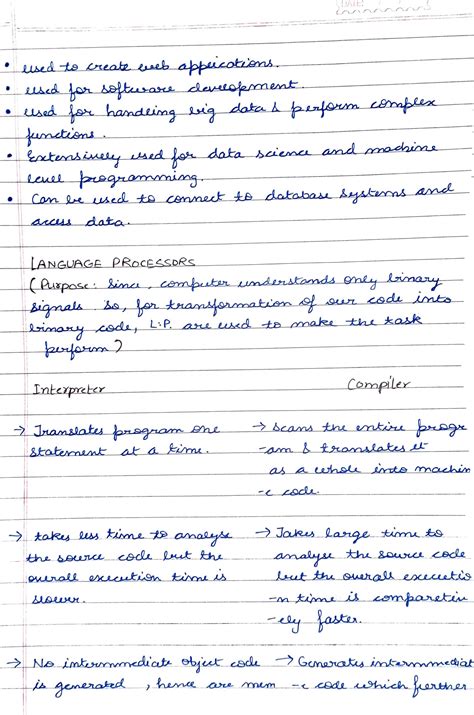 DATE
• used to create web applications.
• used for software development.
• used for handling big data & perform complex
functions.
• Extensively used for data science and machine
level programming.
• Can be used to connect to database systems and
access data.
LANGUAGE PROCESSORS
(Purpose: Since, computer understands only binary
signals. So, for transformation of our code into
binary code, L.P. are used to make the task
perform)
Interpreter    Compiler
→ Translates program one    → Scans the entire progr
statement at a time.    -am & translates it
as a whole into machin
-e code.
→ takes less time to analyse    → Takes large time to
the source code but the    analyse the source code
overall execution time is    but the overall executio
slower.    -n time is comparetiv
-ely faster.
→ No intermmediate object code    → Generates intermmediat
is generated, hence are mem    -e code which further